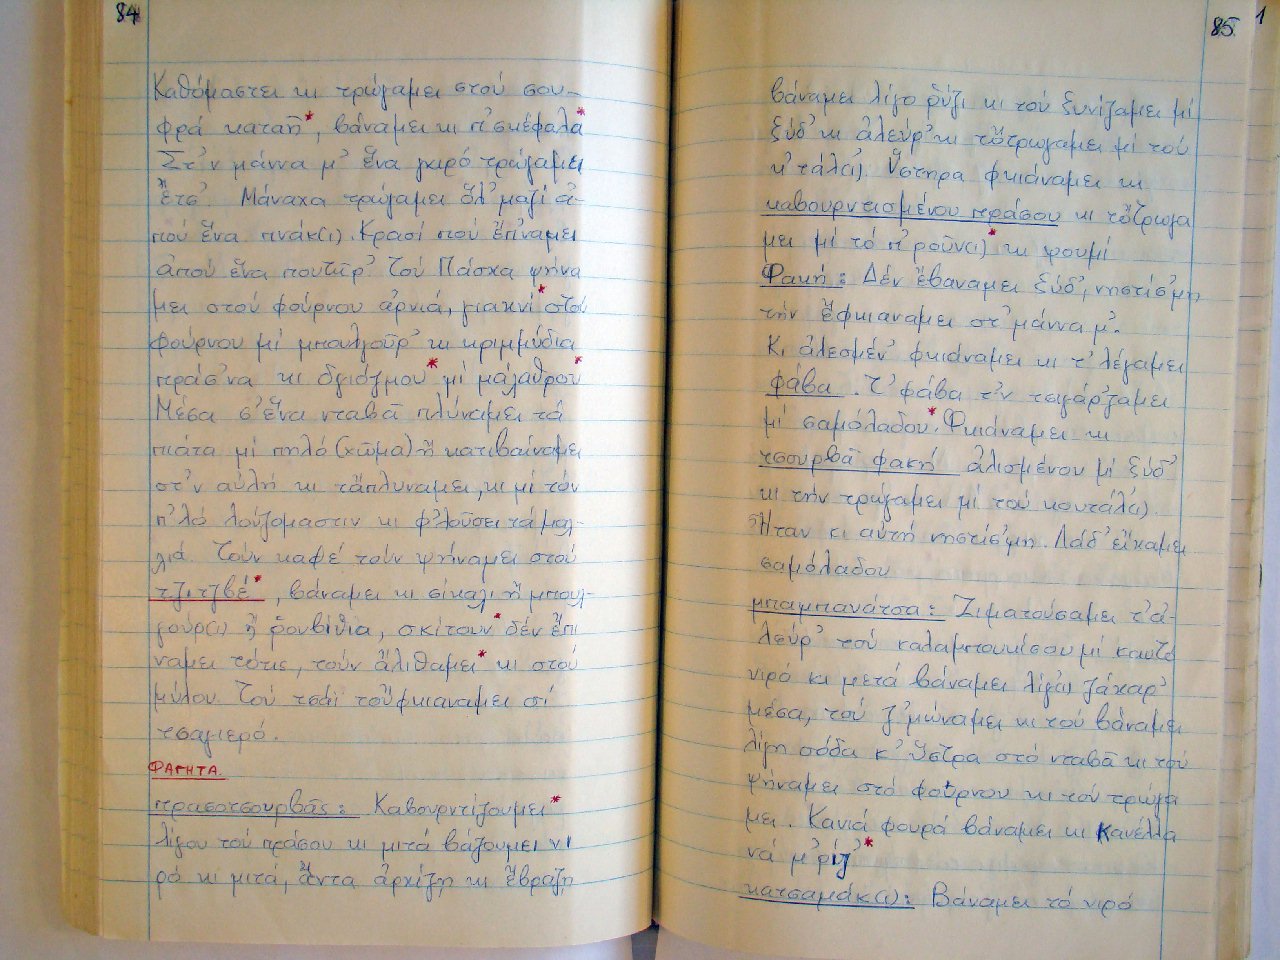 84
Καθόμαστει κι τρώγαμει στού σου-
φρά καταῆ*, βάναμει κι π'σκέφαλα*
Στ'ν μάννα μ' ἕνα γκιρό τρώγαμει
ἔτσ'. Μάναχα τρώγαμει ὅλ' μαζί ἀ-
πού ἕνα πινάκ(ι). Κρασί πού ἔπ'ναμει
ἀπού ἕνα πουτῆρ' Τού Πάσχα ψήνα
μει στού φούρνου ἀρνιά, γιαχνί* στού
φούρνου μί μπουλγοῦρ' κι κριμμύδια
πράσ'να κι δγιόζμου* μί μάλαθρου*
Μέσα σ' ἕνα νταβᾶ πλύναμει τά
πιάτα μί πηλό (χῶμα) ἤ κατιβαίναμει
στ'ν αὐλή κι τἄπλυναμει, κι μί τόν
π'λό λούζομαστιν κι φ'λοῦσει τά μαλ-
λιά. Τούν καφέ τούν ψήναμει στού
τζιτζβέ*, βάναμει κι σίκαλι ἤ μπουλ-
γούρ(ι) ἤ ρουβίθια, σκίτουν* δέν ἔπι
ναμει τότις, τούν ἄλιθαμει* κι στού
μύλου. Τού τσάϊ τοὔφκιαναμει σί
τσαγιερό.
ΦΑΓΗΤΑ
πρασοτσουρβᾶς: Καβουρντίζουμει*
λίγου τού πράσου κι μιτά βάζουμει νι
ρό κι μιτά, ἄντα ἀρχίζῃ κι ἔβραζῃ
85 1
βάναμει λίγο ρύζι κι τού ξυνίζαμει μί
ξύδ' κι ἀλεύρ' κι τὄτρωγαμει μί τού
κ'τάλ(ι). Ὕστηρα φκιάναμει κι
καβουρντισμένου πράσου κι τὄτρωγα
μει μί τό π'ροῦν(ι)* κι ψουμί
Φακή: Δέν ἔβαναμει ξύδ', νηστίσ'μη
τήν ἔφκιαναμει στ' μάννα μ'.
Κι ἀλεσμέν' φκιάναμει κι τ' λέγαμει
φάβα. Τ' φάβα τ'ν τσιγάρ'ζαμει
μί σαμόλαδου*. Φκιάναμει κι
τσουρβᾶ φακή ἀλισμένου μί ξύδ'
κι τήν τρώγαμει μί τού κουτάλ(ι).
Ἦταν κι αὐτή νηστίσ'μη. Λάδ' εἴχαμει
σαμόλαδου
μπαμπανάτσα: Ζιματούσαμει τ' ἀ-
λεύρ' τού καλαμπουκίσου μί καυτό
νιρό κι μετά βάναμει λίγ(η) ζάχαρ'
μέσα, τού ζ'μώναμει κι τού βάναμει
λίγη σόδα κ' ὕστρα στό νταβᾶ κι τού
ψήναμει στό φούρνου κι τού τρώγα
μει. Κανιά φουρά βάναμει κι κανέλλα
νά μ'ρίζ'*
κατσαμάκ(ι): Βάναμει τό νιρό